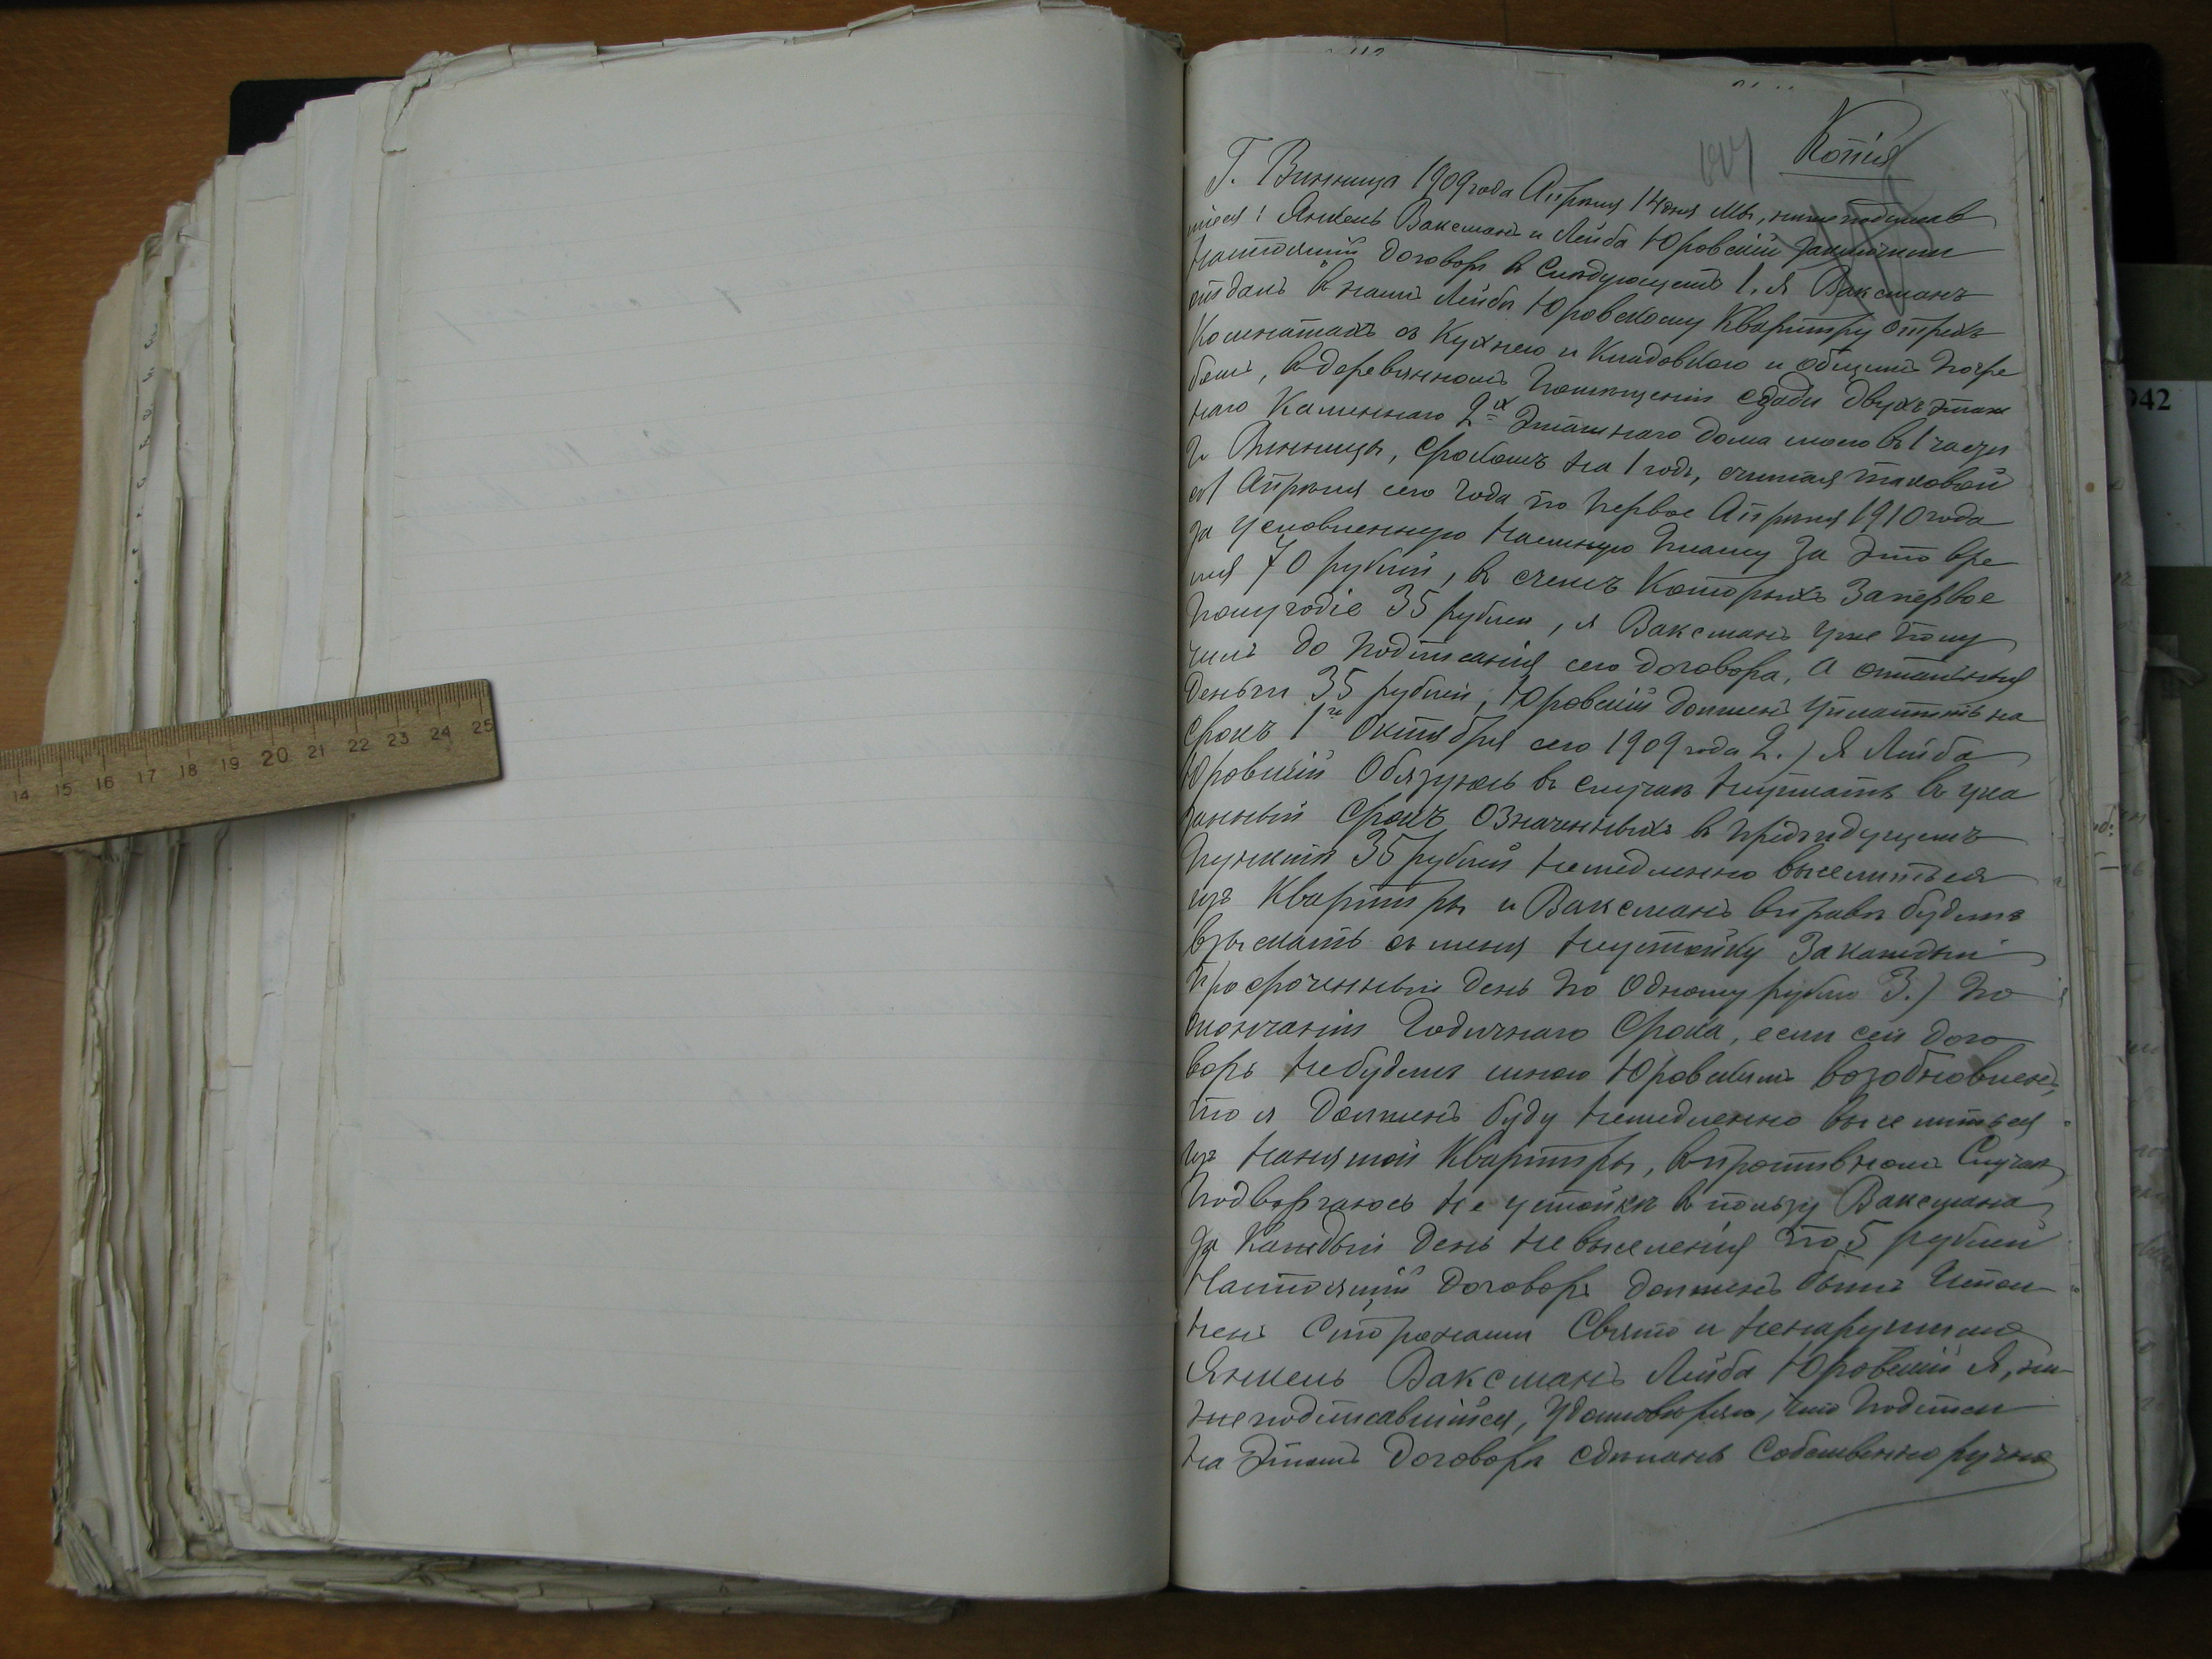 Копія
Г. Винница 1909 года Апрѣля 14 дня Мы, нижеподписав
шіеся: Янкель Ваксманъ и Лейба Юровскій заключили
настоящій договоръ въ слѣдующемъ 1, я Ваксманъ
отдалъ въ наемъ Лейбѣ Юровскому Квартиру о трехъ
Комнатахъ съ Кухнею и Кладовкою и общимъ погре
бомъ, въ деревянномъ помѣщеніи сзади двухъэтаж
наго Каменнаго 2х Этажнаго дома моего въ 1 части
г. Винницы, срокомъ на 1 годъ, считая таковой
съ 1 Апрѣля сего года по первое Апрѣля 1910 года
за условленную наемную плату за это вре
мя 70 рублей, въ счетъ Которыхъ за первое
полугодіе 35 рублей, я Ваксманъ уже полу
чилъ до подписанія сего договора, а остальныя
деньги 35 рублей, Юровскій долженъ уплатить на
срокъ 1го Октября сего 1909 года 2.) Я Лейба
Юровскій Обязуюсь въ случаѣ неуплаты въ ука
занный срокъ означенныхъ въ предъидущемъ
пунктѣ 35 рублей немедленно выселиться
изъ Квартиры и Ваксманъ вправѣ будетъ
взыскать съ меня неустойку за каждый
просроченный день по Одному рублю 3.) по
окончаніи Годичнаго Срока, если сей дого
воръ небудетъ мною Юровскимъ возобновленъ,
то я Долженъ буду немедленно выселиться
изъ нанятой Квартиры, въ противномъ Случаѣ
подвергаюсь не устойкѣ въ пользу Ваксмана
за Каждый день не выселенія по 5 рублей
Настоящій договоръ долженъ быть Испол
ненъ Сторонами Свято и ненарушимо
Янкель Ваксманъ Лейба Юровскій Я, ни-
жеподписавшійся, удостовѣряю, что подписи
на Этомъ Договорѣ сдѣланы Собственноручно
14 15 16 17 18 19 20 21 22 23 24 25
942